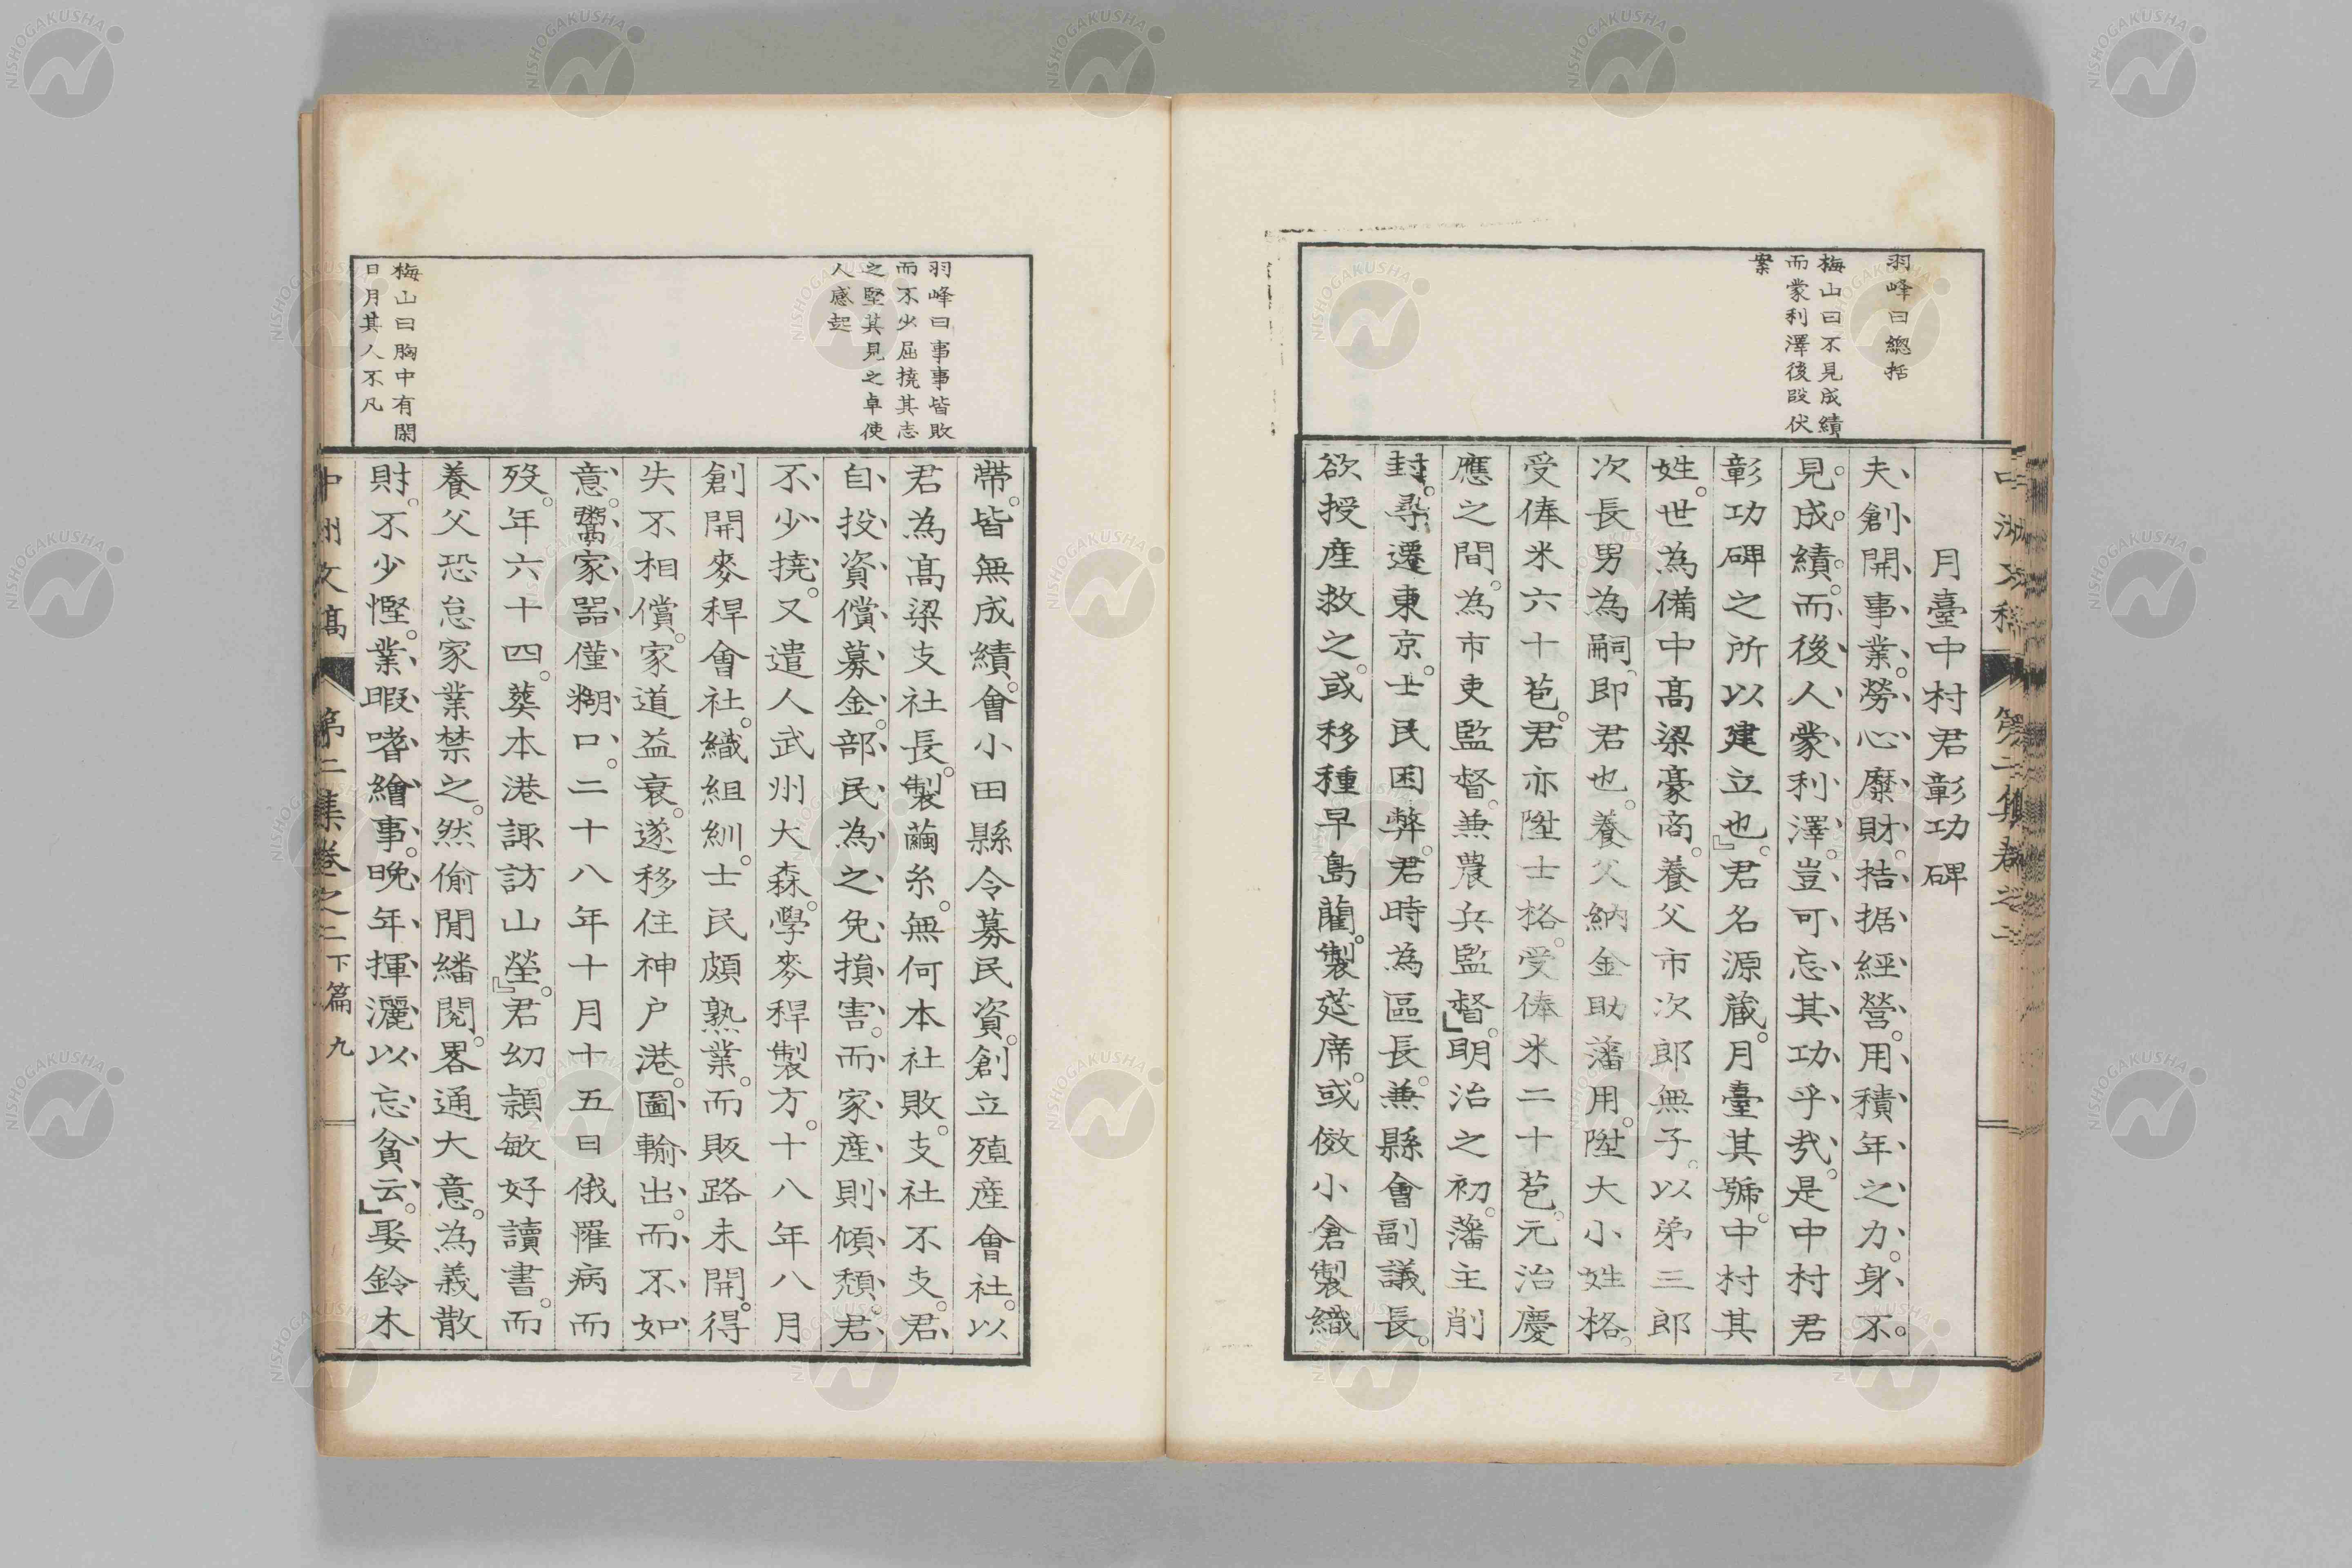 羽峰曰總括
梅山曰不見成績
而蒙利澤後段伏
案
月臺中村君彰功碑
夫創開事業。勞心糜財。拮据經營。用積年之力。身不
見成績。而後人蒙利澤。豈可忘其功乎哉。是中村君
彰功碑之所以建立也。』君名源藏。月臺其號。中村其
姓。世為備中髙梁豪商。養父市次郎無子。以弟三郎
次長男為嗣。即君也。養父納金助藩用。陞大小姓格。
受俸米六十苞。君亦陞士格。受俸米二十苞。元治慶
應之間。為市吏監督。兼農兵監督。』明治之初。藩主削
封。尋遷東京。士民困弊。君時為區長。兼縣會副議長。
欲授産救之。或移種早島藺。製莚席。或倣小倉製織
羽峰曰事事皆敗
而不少屈撓其志
之堅其見之卓使
人感起
梅山曰胸中有閑
日月其人不凡
帶。皆無成績。會小田縣令募民資。創立殖産會社。以
君為髙梁支社長。製繭糸。無何本社敗。支社不支。君
自投資償募金。部民為之免損害。而家産則傾頽。君
不少撓。又遣人武州大森。學麥稈製方。十八年八月
創開麥稈會社。織組紃。士民頗熟業。而販路未開。得
失不相償。家道益衰。遂移住神户港。圖輸出。而不如
意。鬻家噐僅糊口。二十八年十月十五日俄罹病而
歿。年六十四。葬本港諏訪山塋。』君幼頴敏好讀書。而
養父恐怠家業禁之。然偷閒繙閲。畧通大意。為義散
財。不少慳。業暇嗜繪事。晚年揮灑以忘貧云。』娶鈴木
中洲文稿 第二集卷之二下篇 九